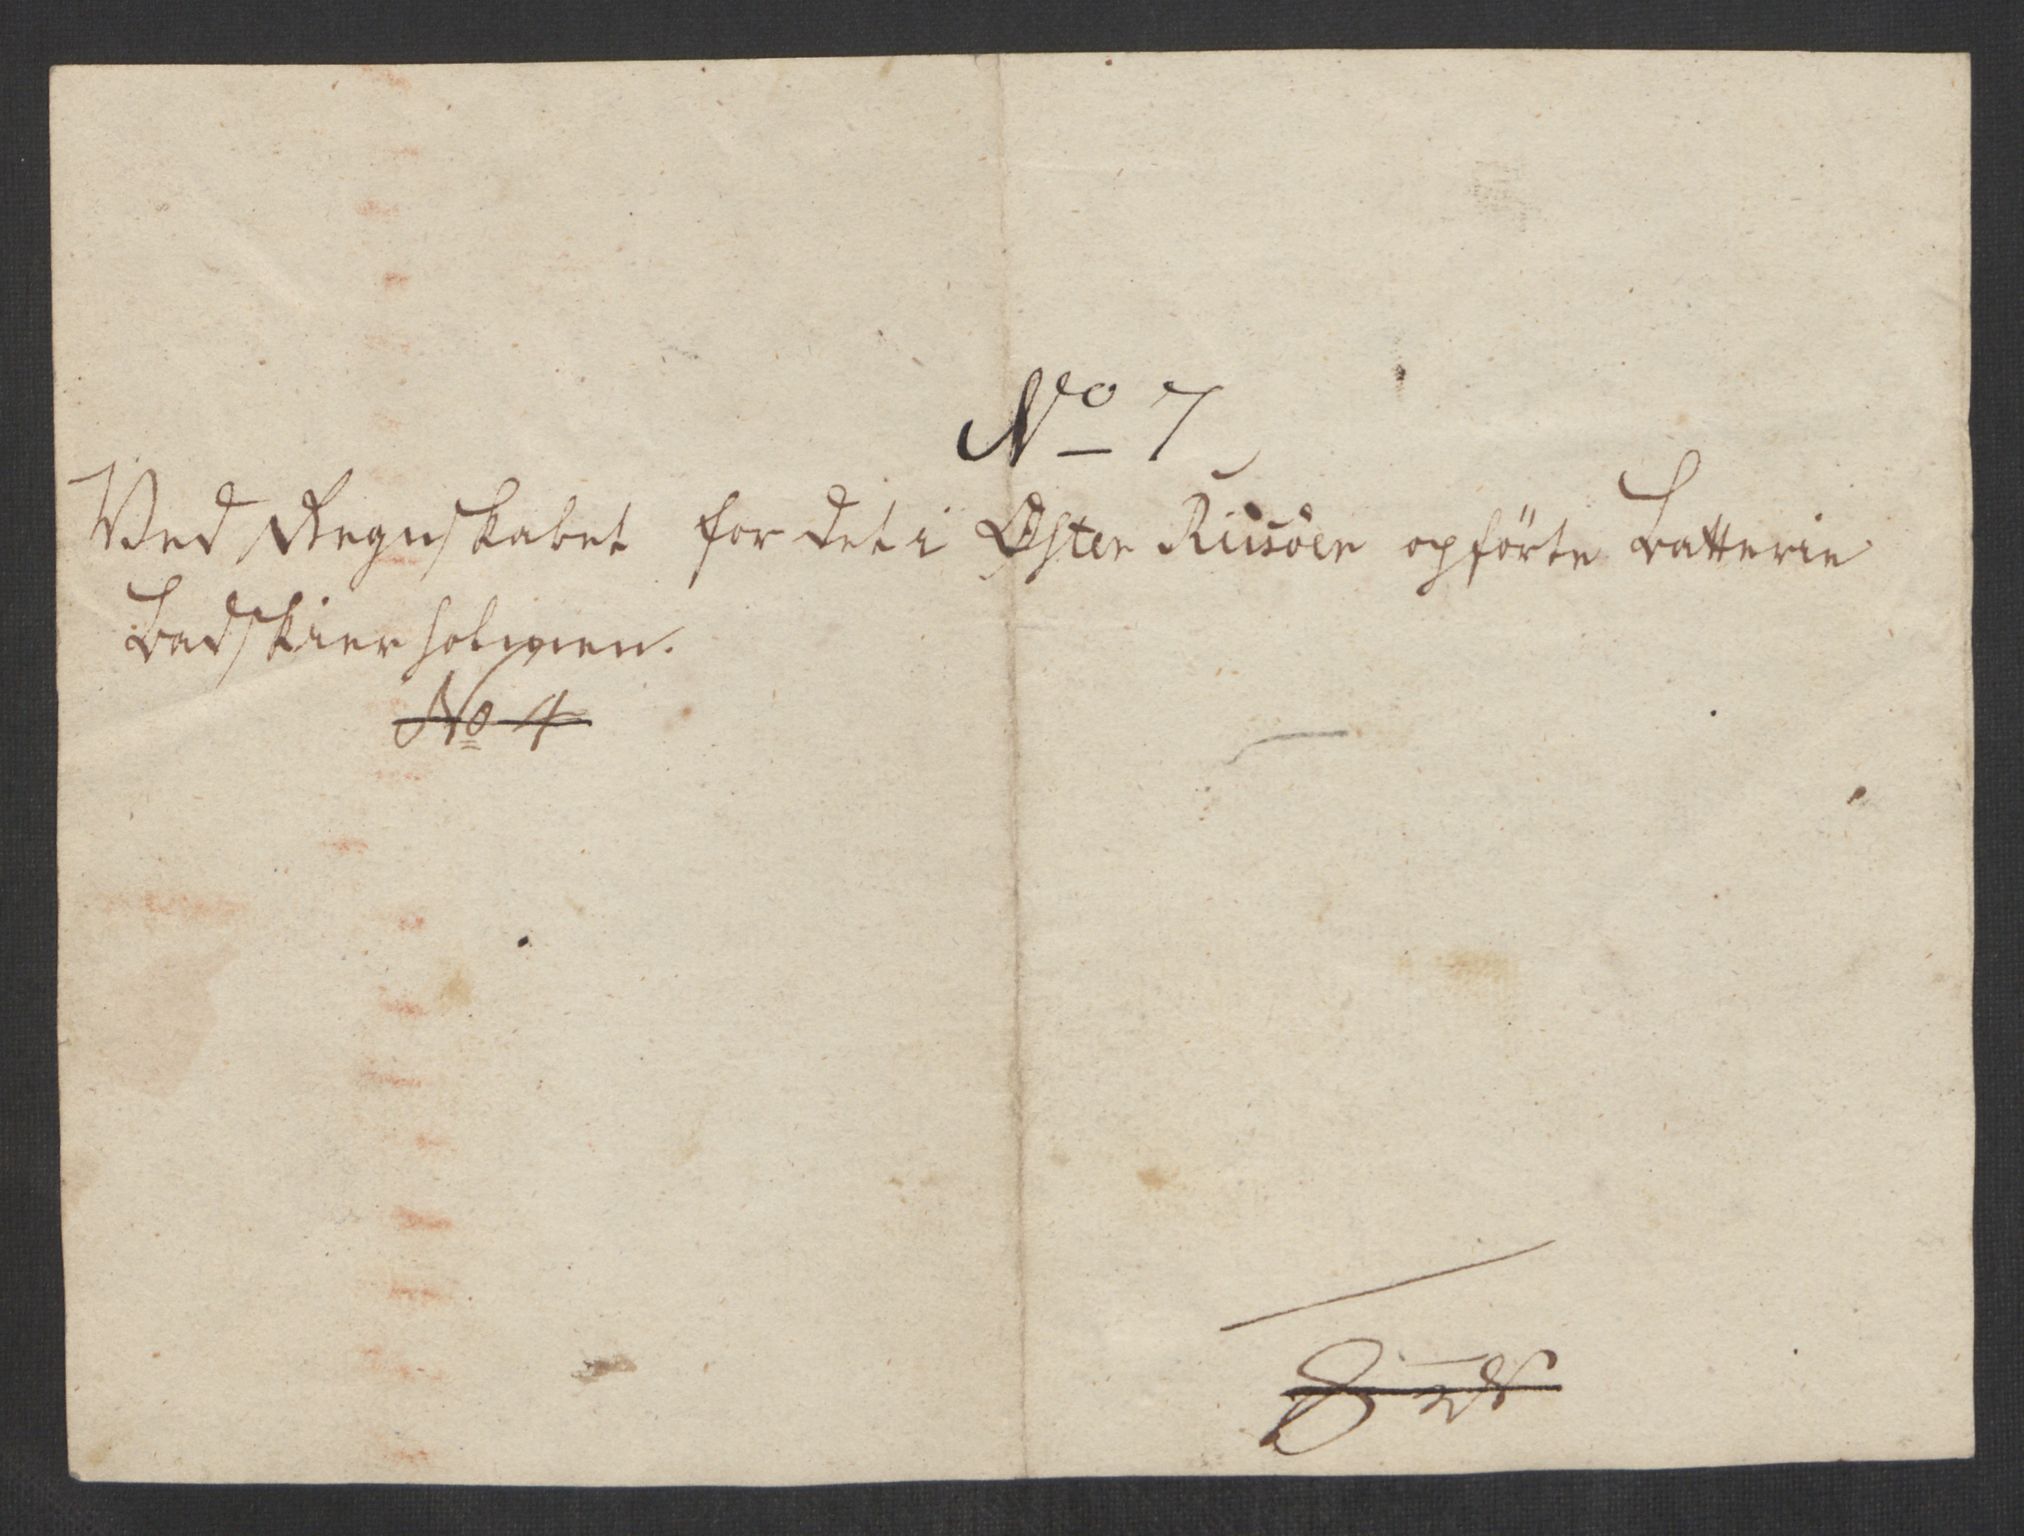 No 7
Ved Regnskabet for det i Øster Riisöer opförte Batterie
Badskierholmen.
No 4